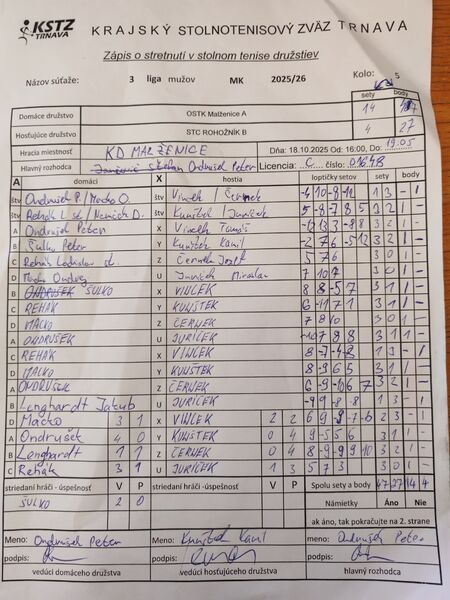 KSTZ TRNAVA
KRAJSKÝ STOLNOTENISOVÝ ZVÄZ TRNAVA
Zápis o stretnutí v stolnom tenise družstiev
Názov súťaže: 3 liga mužov MK 2025/26 Kolo: 5
sety body
Domáce družstvo OSTK Malženice A 14
Hosťujúce družstvo STC ROHOŽNÍK B 4 27
Hracia miestnosť KD MALŽENICE Dňa: 18.10.2025 Od: 16:00, Do: 19.05
Hlavný rozhodca Ondrušek Peter Licencia: C číslo:
A domáci X hostia loptičky setov sety body
štv Ondrušek P./Macko O. štv Vincek / Černek 1 3 - 1
štv Rehák L st./ štv Kunštek / Juríček 5 -8 -7 8 5 3 2 1 -
A Ondrušek Peter X Vincek Tomáš
B Šulko Peter Y Kunštek Kamil 3 2 1 -
C Rehák Ladislav st. Z Černek Jozef 5 7 6 3 0 1 -
D Macko Ondrej U Juríček Miroslav 7 10 7 3 0 1 -
B ŠULKO X VINCEK 8 8 -5 7 3 1 1 -
C REHÁK Y KUNŠTEK 6 -11 7 1 3 1 1 -
D MACKO Z ČERNEK 7 8 10 3 0 1 -
A ONDRUŠEK U JURÍČEK -10 7 8 8 3 1 1 -
C REHÁK X VINCEK 8 -7 -4 -8 1 3 - 1
D MACKO Y KUNŠTEK 8 -9 6 5 3 1 1 -
A ONDRUŠEK Z ČERNEK 3 2 1 -
B Lenghardt Jakub U JURÍČEK -9 9 -8 -8 1 3 - 1
D Macko 3 1 X VINCEK 2 2 6 9 -9 -7 -6 2 3 - 1
A Ondrušek 4 0 Y KUNŠTEK 0 4 9 -5 5 6 3 1 1 -
B Lenghardt 1 1 Z ČERNEK 0 4 8 -9 -9 9 10 3 2 1 -
C Rehák 3 1 U JURÍČEK 1 3 5 7 3 3 0 1 -
striedaní hráči - úspešnosť V P striedaní hráči -úspešnosť V P Spolu sety a body 47 27 14 4
ŠULKO 2 0 Námietky Áno Nie
ak áno, tak pokračujte na 2. strane
Meno: Ondrušek Peter Meno: Kunštek Kamil meno: Ondrušek Peter
podpis: podpis: podpis:
vedúci domáceho družstva vedúci hosťujúceho družstva hlavný rozhodca